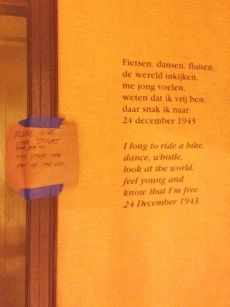 Fietsen, dansen, fluiten,
de wereld inkijken,
me jong voelen,
weten dat ik vrij ben,
daar snak ik naar.
24 december 1943
I long to ride a bike,
dance, whistle,
look at the world,
feel young and
know that I'm free.
24 December 1943